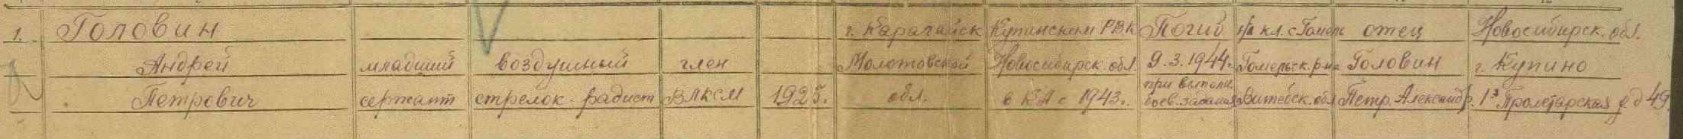 1. Головин г. Карагайск Купинским РВК Погиб кл. с. Гомель отец Новосибирск. обл.
Андрей младший воздушный член Молотовской Новосибирск. обл. 9.3.1944г. Гомельск. р-на Головин г. Купино
Петрович сержант стрелок-радист ВЛКСМ 1925г. обл. в КА с 1943г. при выполн. боев. задания Витебск. обл. Петр Александр. 1я Пролетарская д. 49